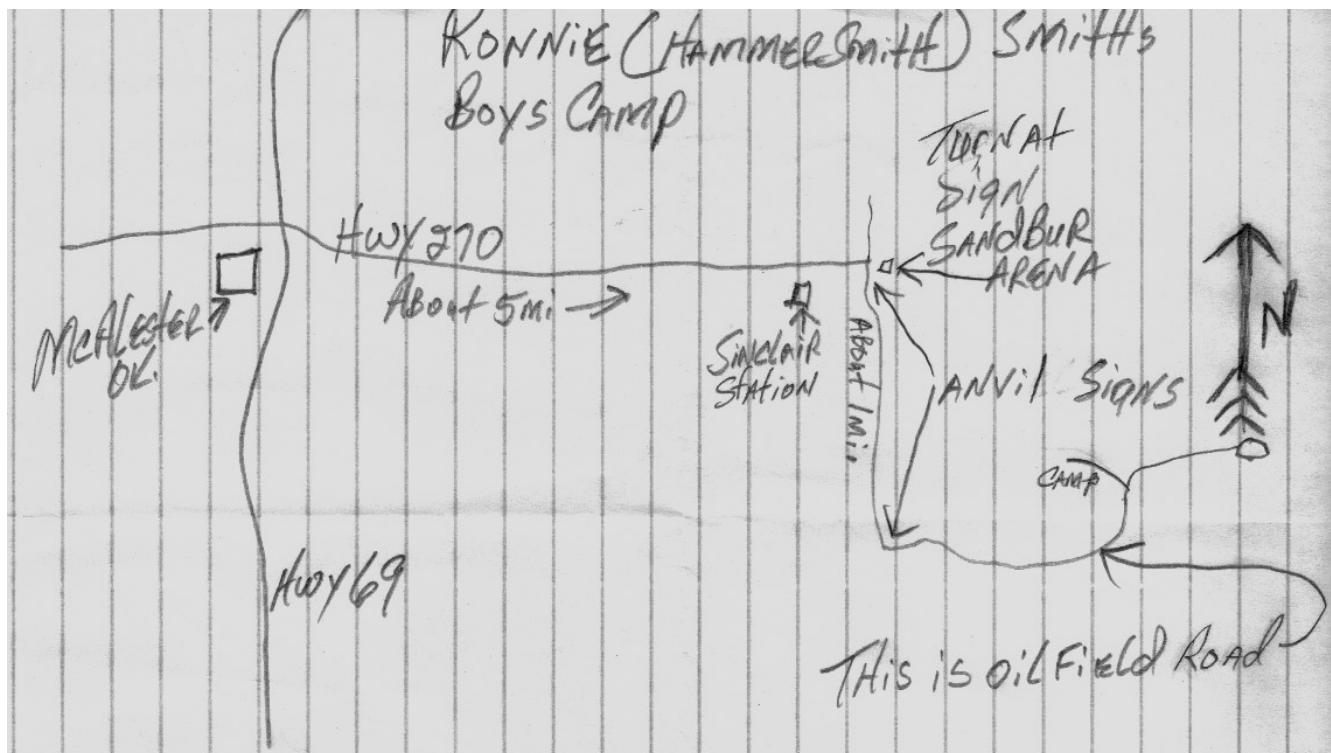 RONNIE (HAMMERSMITH) SMITHS
BOYS CAMP
TURN AT
SIGN
SANDBUR
ARENA
HWY 270
ABOUT 5 mi
McALESTER
OK.
SINCLAIR
STATION
ABOUT 1 Mi.
ANVIL SIGNS
N
CAMP
HWY 69
THIS IS OIL FIELD ROAD